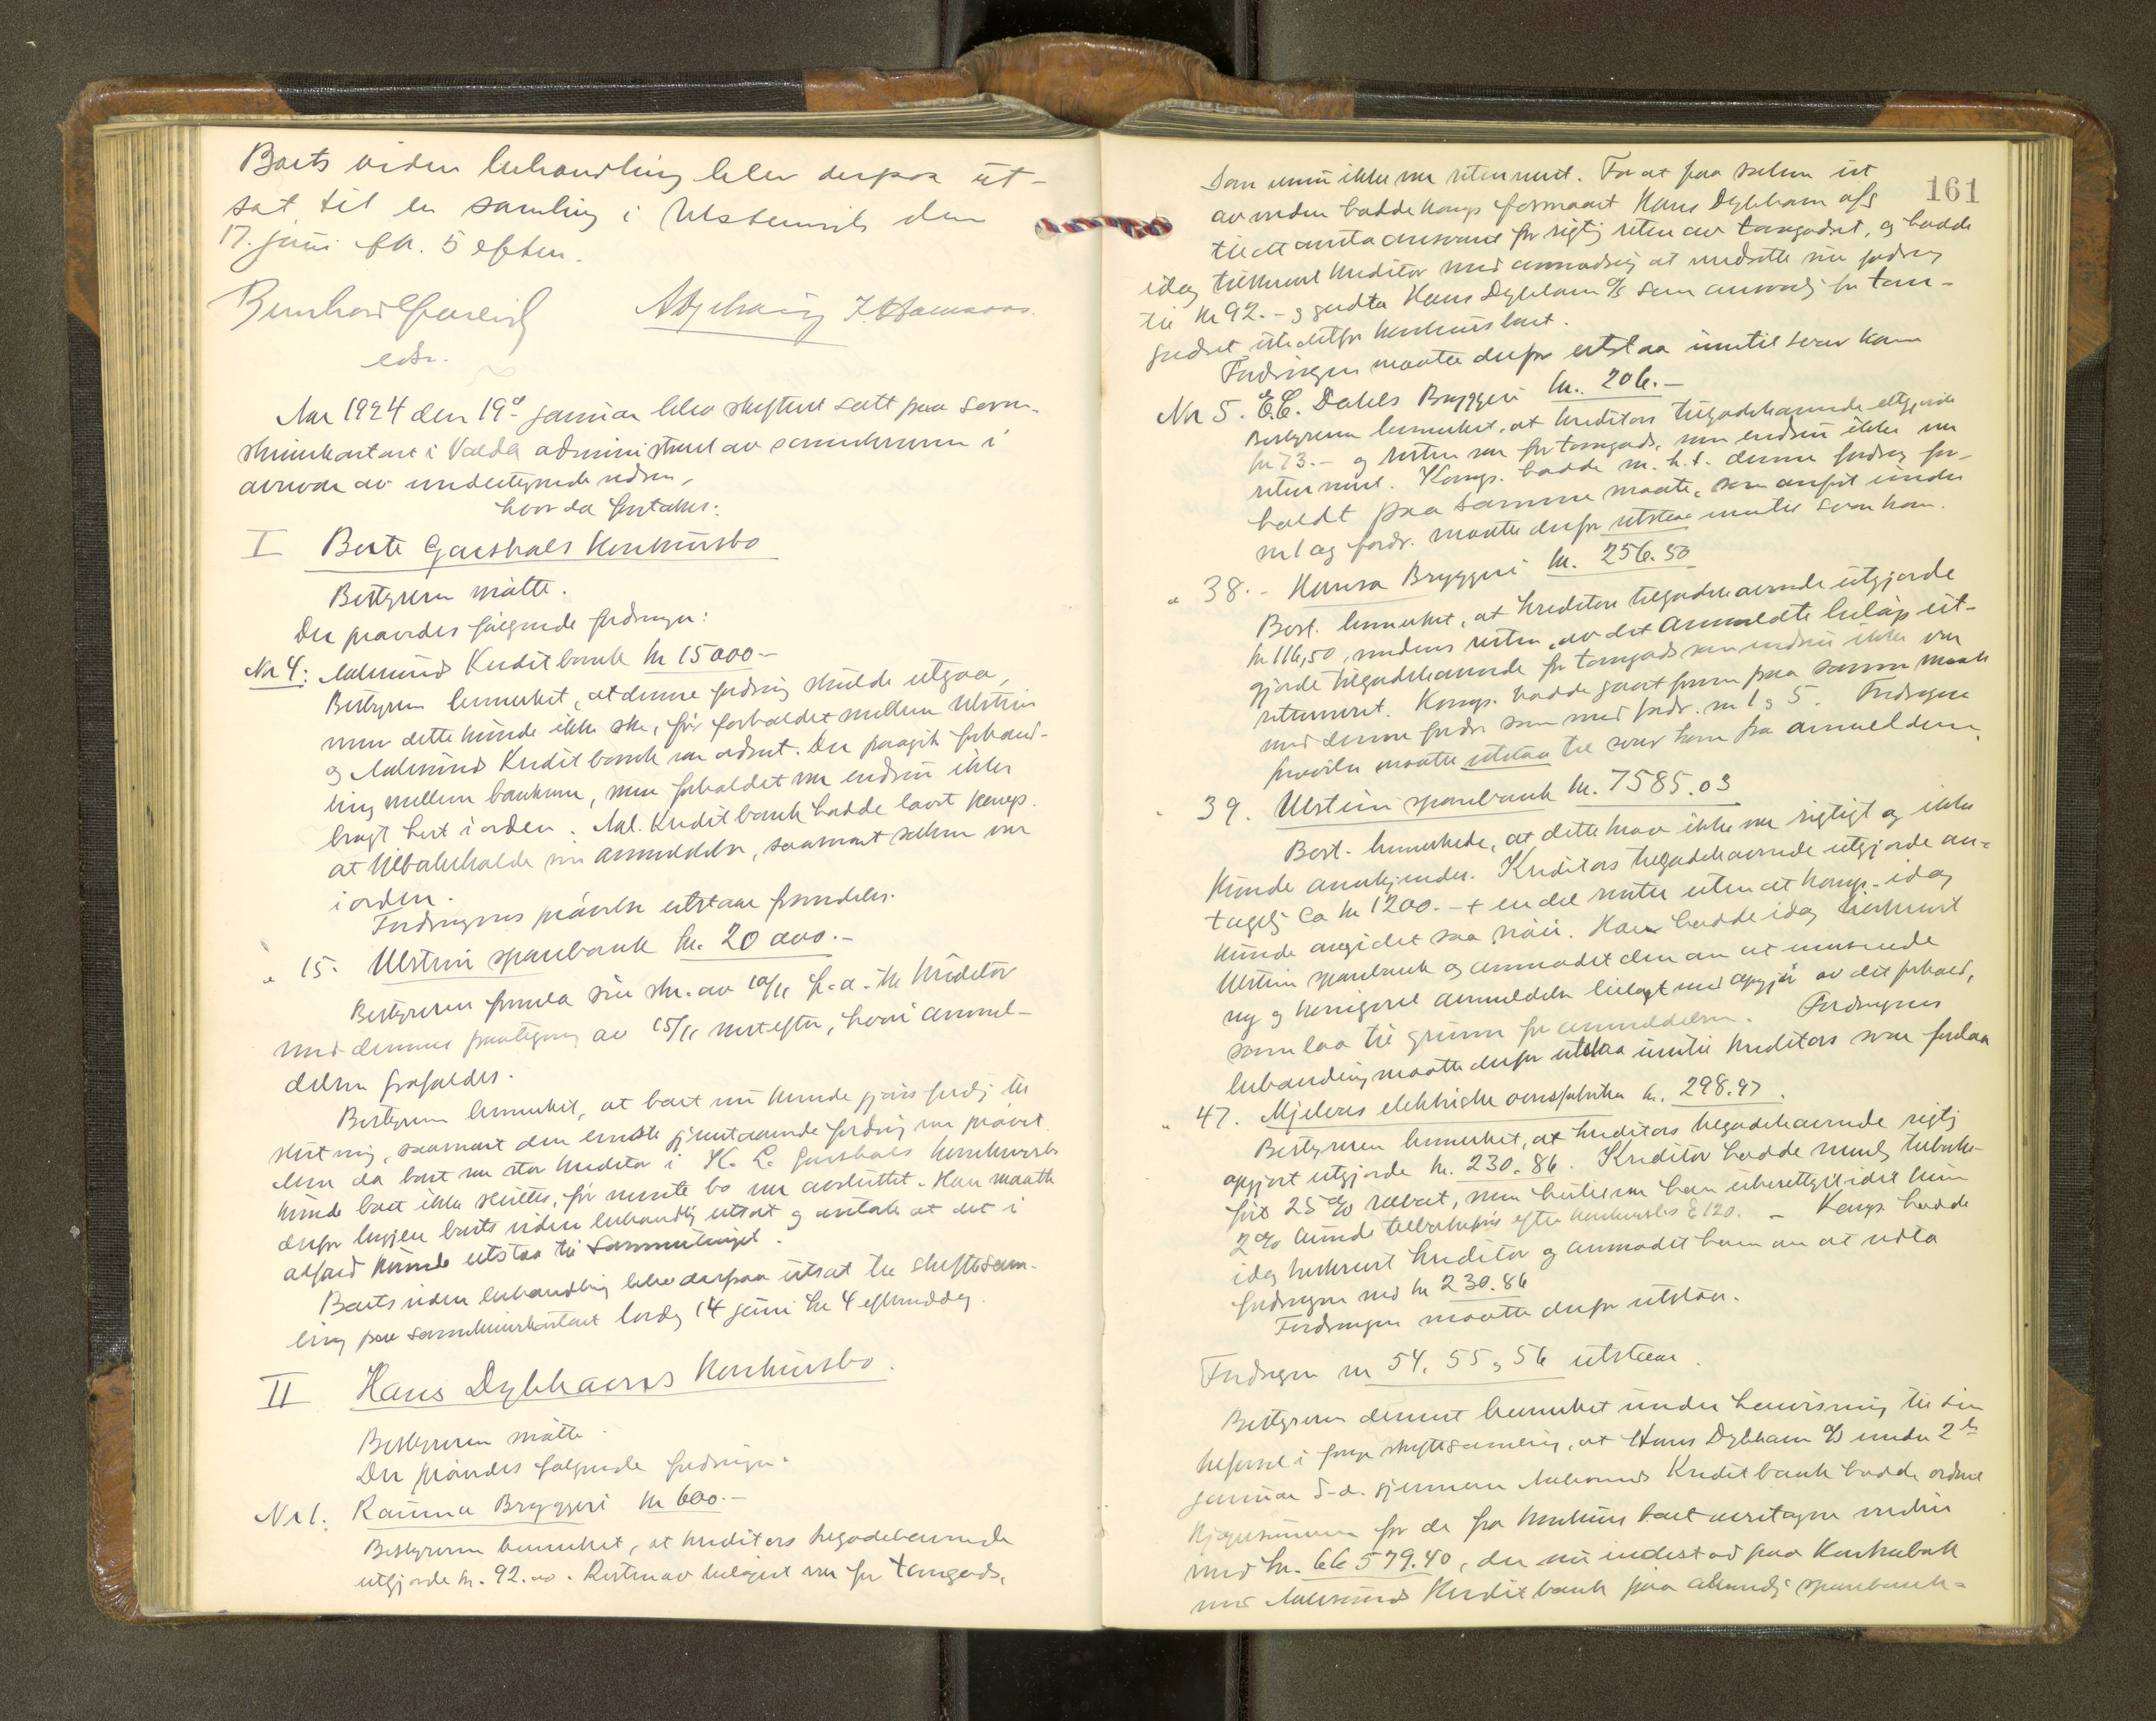 Boets viden behandling blev derpaa ut-
sat til en samling i Ulsteinvik den
17. juni fk. 5 efterm.
edsv.
Aar 1924 den 19de januar blev skifteret satt paa soren-
skriverkontoret i Volda administrert av sorenskriveren i
nærvær av undertegnede vidner,
hvor da foretakes:
I Berte Garshols konkursbo
Bestyreren møtte.
Der prøvedes følgende fordringer:
Nr 4: Aalesunds Kreditbank kr 15000.-
Bestyreren bemerket, at denne fordring skulde utgaa,
men dette kunde ikke ske, før forholdet mellem Ulstein
og Aalesunds Kreditbank var ordnet. Der paagik forhand-
ling mellem bankene, men forholdet var endnu ikke
bragt helt i orden. Aal. Kreditbank hadde lovt komp.
at tilbakekalde sin anmeldelse, saasnart saken var
i orden.
Fordringens prøvelse utstaar fremdeles.
" 15. Ulstein sparebank kr. 20 000.-
Bestyreren fremla sin skr. av 10/11 f.a. til kreditor
med dennes paategning av 15/11 næstefter, hvori anmel-
delsen frafaldes.
Bestyreren bemerket, at boet nu kunde gjøres færdig til
slutning, saasnart den eneste gjenstaaende fordring var prøvet.
Men da boet var stor kreditor i K. L. Garshols konkursbo
kunde boet ikke sluttes, før nævnte bo var avsluttet. Han maatte
derfor begjære boets viden behandling utsat og antok at det i
alfald kunde utstaa til sommertinget.
Boets viden behandling blev derpaa utsat til skiftesam-
ling paa sorenskriverkontoret lørdag 14 juni kl 4 eftermiddag.
II Hans Dybhavns Konkursbo.
Bestyreren møtte.
Der prøvedes følgende fordringer.
Nr 1. Rauma Bryggeri kr 600.-
Bestyreren bemerket, at kreditors tilgodehavende
utgjorde kr. 92.00. Resten av beløpet var for tomgods,
161
som ennu ikke var returnert. For at faa saken ut
av verden hadde komp. formaaet Hans Dybhavn A/S
til at anta ansvaret for rigtig retur av tomgodset, og hadde
idag tilskrevet kreditor med anmodning at nedsætte sin fordring
til kr 92.- og godta Hans Dybhavn A/S som ansvarlig for tom-
godset utenfor konkursboet.
Fordringen maatte derfor utstaa inntil svar kom
Nr 5. E.C. Dahls Bryggeri kr. 206.-
Bestyreren bemerket, at kreditors tilgodehavende utgjorde
kr 73.- og resten var for tomgods, som endnu ikke var
returnert. Komp. hadde m.h.t. denne fordring for-
holdt paa samme maate, som anført under
nr 1 og fordr. maatte derfor utstaa inntil svar kom.
" 38. - Hansa Bryggeri kr. 256.50
Best. bemerket, at kreditors tilgodehavende utgjorde
kr 116,50, medens resten av det anmeldte beløp ut-
gjorde tilgodehavende for tomgods som endnu ikke var
returnert. Komp. hadde gaat frem paa samme maate
med denne fordr. som med fordr. nr 1 og 5. Fordringens
prøvelse maatte utstaa til svar kom fra anmelderen.
" 39. Ulstein sparebank kr. 7585.03
Best. bemerkede, at dette krav ikke var rigtigt og ikke
kunde anerkjendes. Kreditors tilgodehavende utgjorde an-
tagelig ca kr 1200.- + en del renter uten at komp. idag
kunde angi det saa nøie. Han hadde idag tilskrevet
Ulstein sparebank og anmodet den om at innsende
ny og korrigeret anmeldelse bilagt med opgjør av det forhold,
som laa til grunn for anmeldelsen. Fordringens
behandling maatte derfor utstaa inntil kreditors svar forelaa
" 47. Mjelves elektriske ovnsfabrikk kr. 298.97.
Bestyreren bemerket, at kreditors tilgodehavende rigtig
opgjort utgjorde kr. 230.86. Kreditor hadde tilbake-
ført 25 % rabat, men hertil var han uberettiget idet kun
2 % kunde tilbakeføres efter konkurslov § 120. - Komp. hadde
idag tilskrevet kreditor og anmodet ham om at vedta
fordringen med kr 230.86
Fordringen maatte derfor utstaa.
Fordringer nr 54, 55 og 56 utstaar.
Bestyreren dernæst bemerket under henvisning til sin
tilførsel i forrige skiftesamling, at Hans Dybhavn A/S under 2den
januar d.a. gjennem Aalesunds Kreditbank hadde ordnet
kjøpesummen for de fra konkursboet overtagne
med kr. 66 579.40, der nu indestod paa Kontrabok
med Aalesunds Kreditbank paa almindelig sparebank-